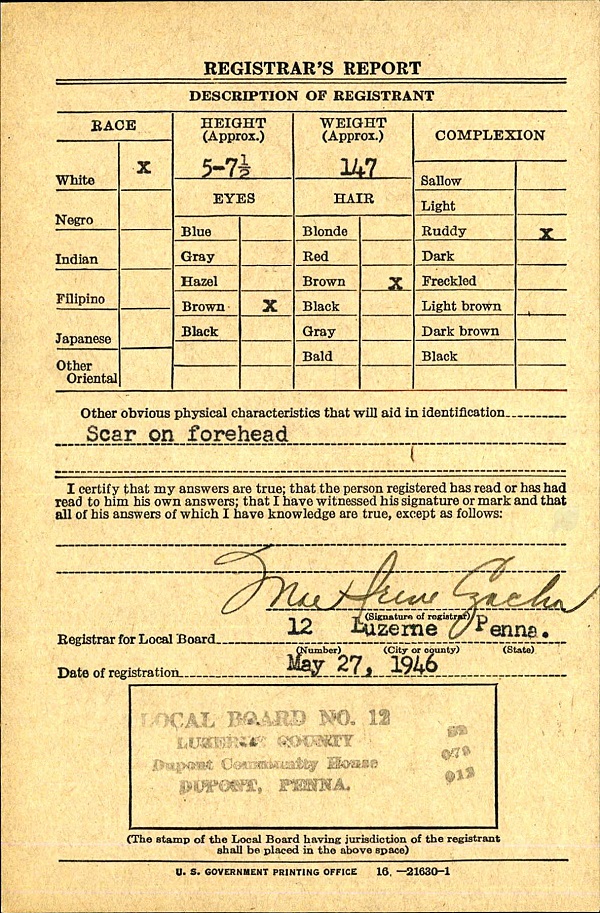 REGISTRAR'S REPORT
DESCRIPTION OF REGISTRANT
RACE
HEIGHT
(Approx.)
WEIGHT
(Approx.)
COMPLEXION
White X
5-7½
147
Sallow
EYES
HAIR
Light
Negro
Blue
Blonde
Ruddy X
Indian
Gray
Red
Dark
Hazel
Brown X
Freckled
Filipino
Brown X
Black
Light brown
Japanese
Black
Gray
Dark brown
Other
Oriental
Bald
Black
Other obvious physical characteristics that will aid in identification
Scar on forehead
I certify that my answers are true; that the person registered has read or has had
read to him his own answers; that I have witnessed his signature or mark and that
all of his answers of which I have knowledge are true, except as follows:
Mae Irene
(Signature of registrar)
Registrar for Local Board 12 Luzerne Penna.
(Number) (City or county) (State)
Date of registration May 27, 1946
LOCAL BOARD NO. 12
LUZERNE COUNTY
Dupont Community House
DUPONT, PENNA.
52
079
012
(The stamp of the Local Board having jurisdiction of the registrant
shall be placed in the above space)
U. S. GOVERNMENT PRINTING OFFICE 16—21630-1